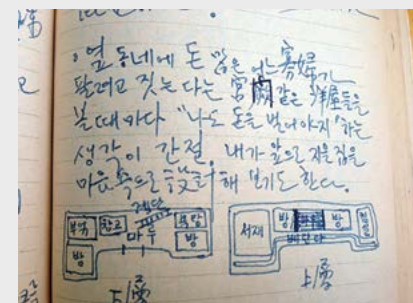 옆 동네에 돈 많은 어느 寡婦가
팔려고 짓는 다는 宮闕 같은 洋屋들을
볼 때 마다 "나도 돈을 벌어야지" 하는
생각이 간절. 내가 앞으로 지을 집을
마음 속으로 設計해 보기도 한다.
계단
부엌 창고 마루 목방
방 방
下層
서재 방 방
베란다
上層